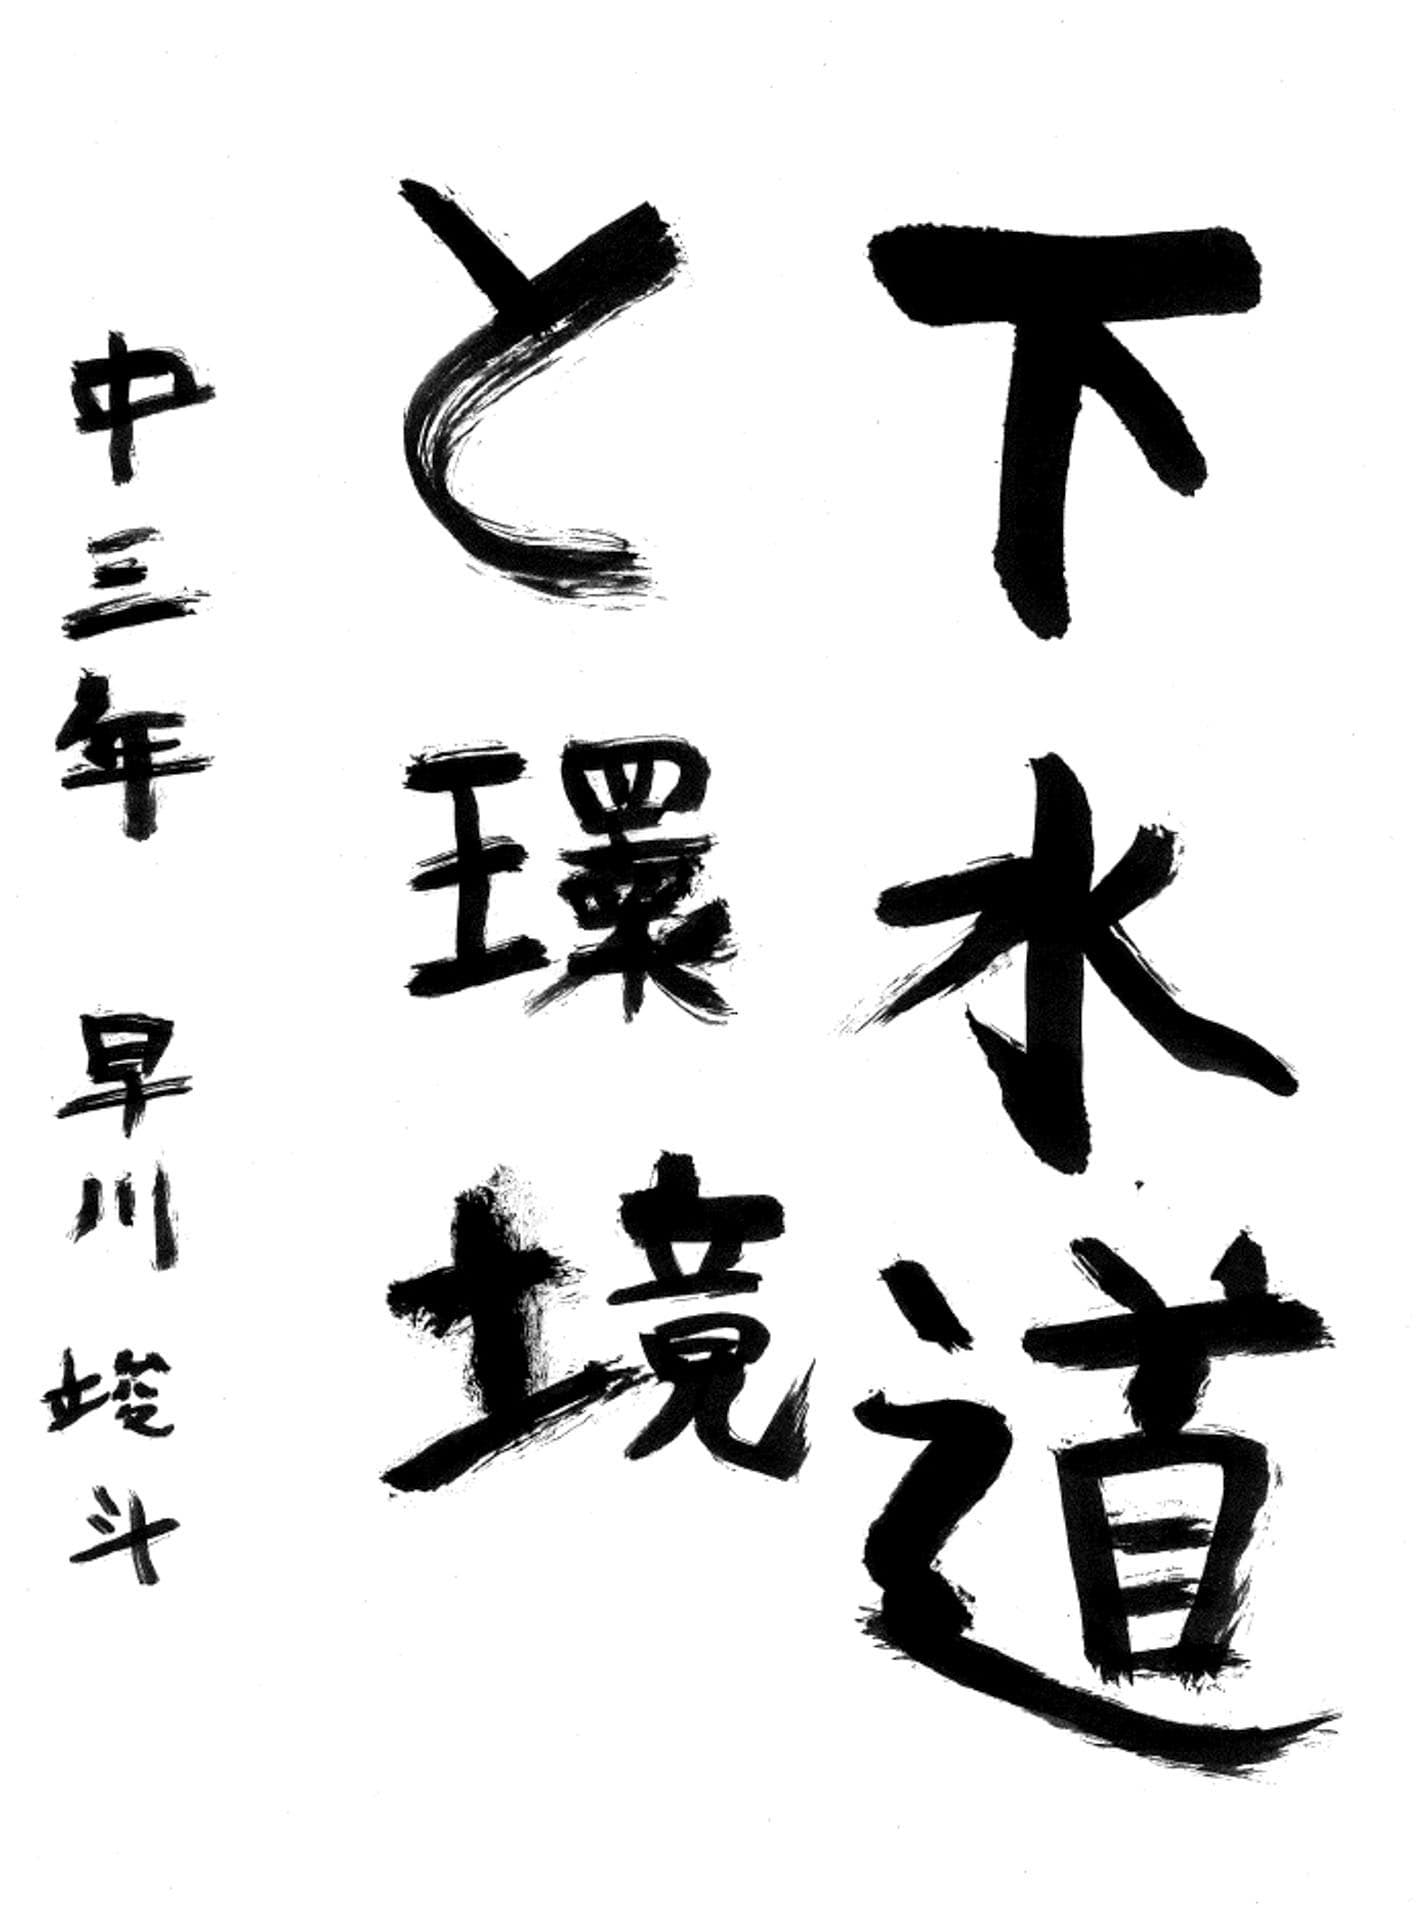 下水道
と環境
中三年 早川 竣斗